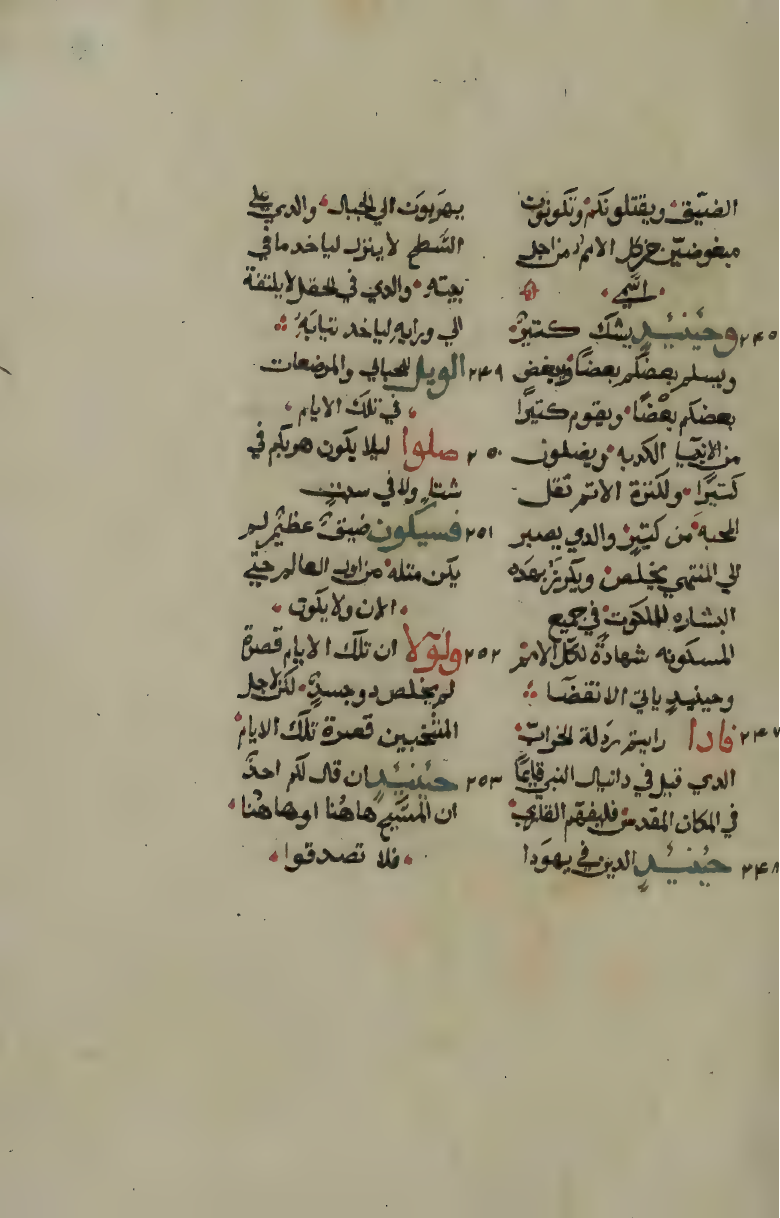 الضيق ويقتلونكم وتكونون
مبغوضين من كل الامم من اجل
اسمي
٢٤٥ وحينيدٍ يشك كتير
ويسلم بعضكم بعضًا ويبغض
بعضكم بعضًا ويقوم كتيرًا
من الانبيا الكدبه ويضلون
كتيرًا ولكترة الاتم تقل
المحبة من كتير والدي يصبر
الي المنتهي يخلص ويكرز بهده
البشاره الملكوت في جميع
المسكونه شهادةً لكل الامم
وحينيدٍ ياتي الانقضا
٢٤٧ فادا رايتم ردلة الخراب
الدي قيل في دانيال النبي قايمًا
في المكان المقدس فليفهم القاري
٢٤٨ حينيدٍ الدين في يهودا
يهربون الي الجبال والدي علي
السطح لا ينزل لياخد ما في
بيته والدي في الحقل لا يلتفة
الي ورايه لياخد تيابه
٢٤٩ الويل للحبالي والمرضعات
في تلك الايام
٢٥٠ صلوا ليلا يكون هربكم في
شتا ولا في سبت
٢٥١ فسيكون ضيق عظيم لم
يكن متله من اول العالم حتي
الان ولا يكون
٢٥٢ ولولا ان تلك الايام قصرة
لم يخلص دو جسدٍ لكن لاجل
المنتخبين قصرة تلك الايام
٢٥٣ حينيدٍ ان قال لكم احدٌ
ان المسيح هاهنا او هاهنا
فلا تصدقوا